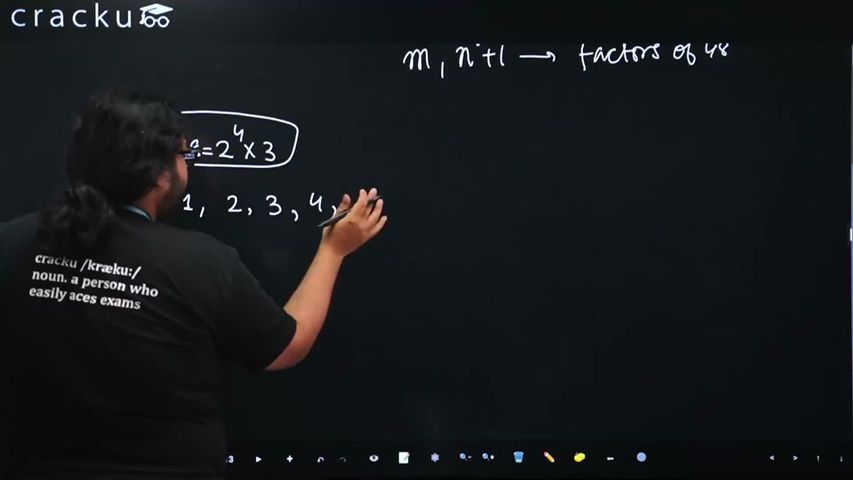 cracku
m, n+1 → factors of 48
=2⁴×3
1, 2, 3, 4,
cracku /kræku:/
noun. a person who
easily aces exams